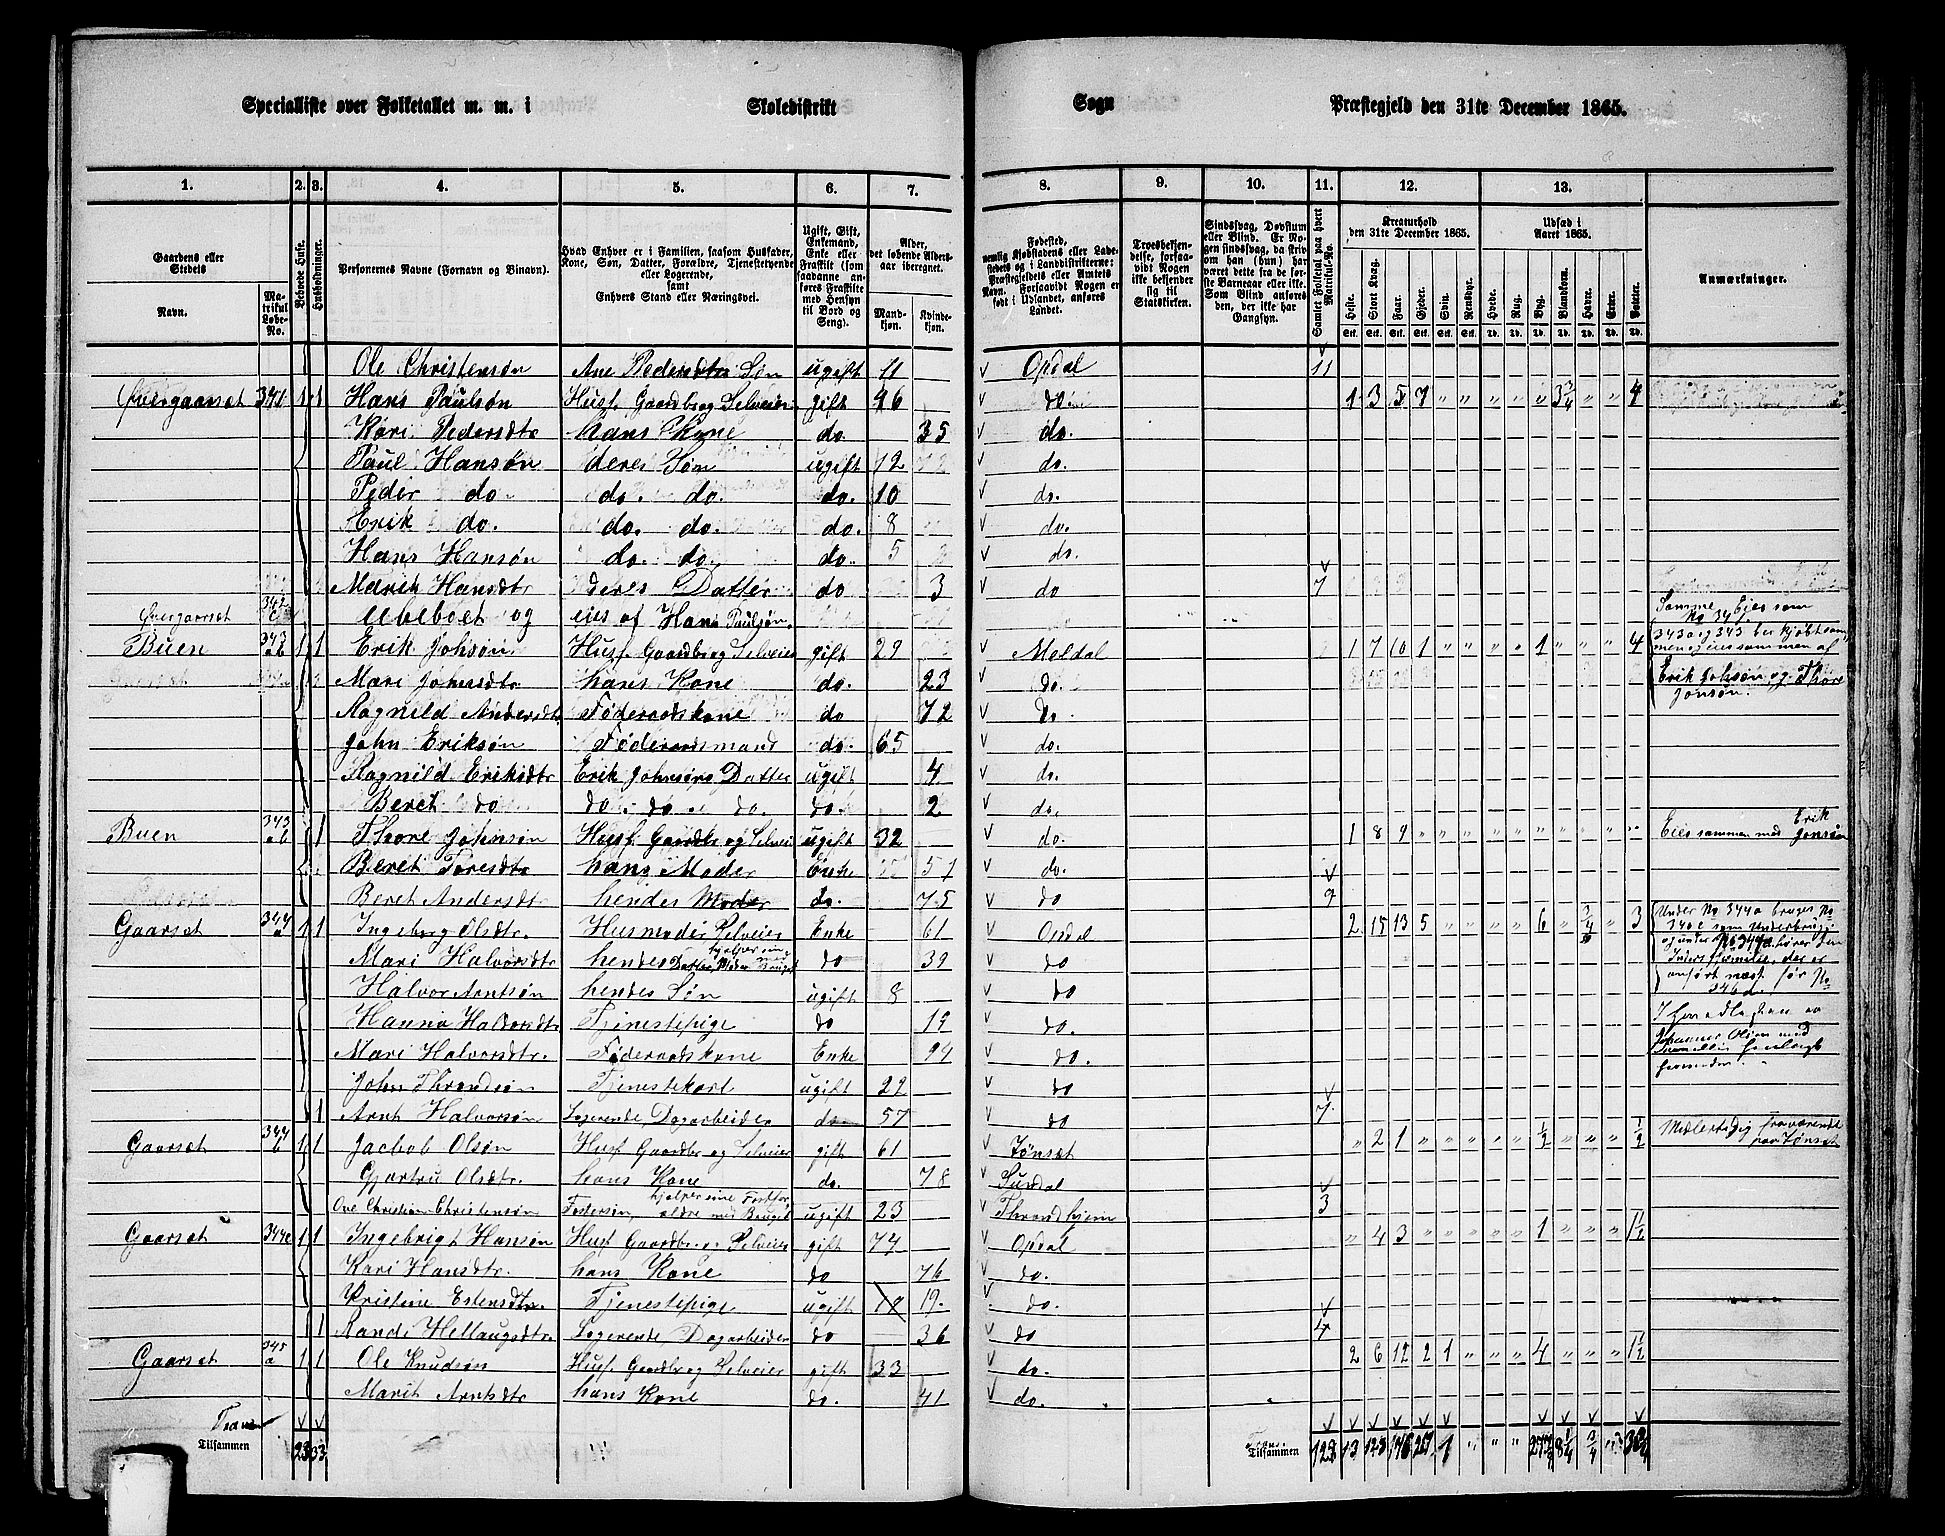 Specialliste over Folketallet m. m. i Skoledistrikt Sogn Præstegjeld den 31te December 1865.
1. 2. 3. 4. 5. 6. 7. 8. 9. 10. 11. 12. 13.
Gaardens eller Stedets
Navn. Matrikul Løbe-No.
Beboede Huse.
Husholdninger.
Personernes Navne (Fornavn og Binavn).
Hvad Enhver er i Familien, saasom Husfader, Kone, Søn, Datter, Forældre, Tjenestetyende eller Logerende, samt Enhvers Stand eller Næringsvei.
Ugift, Gift, Enkemand, Enke eller Fraskilt (som saadanne anføres Fraskilte med Hensyn til Bord og Seng).
Alder, det løbende Aldersaar iberegnet.
Mandkjøn. Kvindekjøn.
Fødested, nemlig Kjøbstadens eller Ladestedets og i Landdistrikterne: Præstegjeldets eller Amtets Navn. Forsaavidt Nogen er født i Udlandet, anføres Landet.
Troesbekjendelse, forsaavidt Nogen ikke bekjender sig til Statskirken.
Sindssvag, Døvstum eller Blind. Er Nogen sindssvag, da skrives om han (hun) har været dette fra de første Barneaar eller ikke. Som Blind anføres den, der ikke har Gangsyn.
Samlet Folketal paa hvert Matrikul-No.
Kreaturhold den 31te December 1865.
Heste. Stort Kvæg. Faar. Gjeder. Svin. Rensdyr.
Udsæd i Aaret 1865.
Hvede. Rug. Byg. Blandkorn. Havre. Erter. Poteter.
Anmærkninger.
Ole Christensøn Ane Pedersdtr Søn ugift 11 Opdal 11
Øvergaarset 341 1 1 Hans Paulsøn Husf. Gaardbr og Selveier gift 46 do 1 3 5 7 " " " " " 3 3/4 " " 4
Kari Pedersdtr hans Kone do. 35 do.
Paul Hansøn deres Søn ugift 12 do.
Peder do do. do. do. 10 do.
Erik do. do. do. do. 8 do.
Hans Hansøn do. do. do. 5 do.
Marit Hansdtr deres Datter do 3 do 7
Øvergaarset 342 Ubeboet og eies af Hans Paulsøn. Samme Eies som No 341.
Buen 343 1 1 Erik Johsøn Husf Gaardbr og Selveier gift 29 Meldal 1 7 10 1 " " " " 1 " " " 4 343 a og 343 b er kjøbt sammen og eies sammen af
Mari Johnsdtr hans Kone do. 23 do. Erik Johsøn og Thore Jonsøn.
Ragnild Andersdtr Føderaadskone do 72 do
John Eriksøn Føderaadsmand do. 65 do.
Ragnild Eriksdtr Erik Johnsøns Datter ugift 4 do.
Beret do do do do. do. 2 do.
Buen 343 b 1 Thore Johnsøn Husf. Gaardbr og Selveier ugift 32 do. 1 8 9 " " " " " " " " " Eies sammen med Erik Jonsøn
Beret Toresdtr hans Moder Enke 57 do.
Beret Andersdtr hendes Moder do. 75 do 9
Gaarset 344 a 1 1 Ingeborg Olsdtr. Husmoder Selveier Enke 61 Opdal 2 15 13 5 " " " " 6 " 3/4 " 3 Under No 344a bruges No
Mari Halvorsdtr hendes Datter, hjelper sin Moder med Bruget do 39 do 346c som Underbrug
Halvor Arntsøn hendes Søn ugift 8 do
Hanna Halvorsdtr Tjenestepige do 19 do.
Mari Halvorsdtr. Føderaadskone Enke 94 do.
John Throndsøn Tjenestekarl ugift 22 do
1 Arnt Halvorsøn Logerende Dagarbeider do 57 do 7.
Gaarset 344 b 1 1 Jachob Olsøn Husf Gaardbr og Selveier gift 61 Tønset " 2 1 " " " " " 1/2 " " " 1/2 Midlertidig fraværende paa Tønset
Gjertru Olsdtr. hans Kone do. 78 Sundal
Ove Christian Christensøn Fostersøn, hjelper sine Fosterforældre med Bruget ugift 23 Throndhjem 3
Gaarset 344c 1 1 Ingebrigt Hansen Husf Gaardbr og Selveier gift 74 Opdal " 4 3 " " " " " 1 " " " 1 1/2
Kari Hansdtr. hans Kone do 76 do.
Kristine Estensdtr. Tjenestepige ugift 19. do.
1 Randi Hellaugsdtr. Logerende Dagarbeider do 36 do 4
Gaarset 345 a 1 1 Ole Knudsøn Husf Gaardbr og Selveier gift 33 do. 2 6 12 2 1 " " " 4 " " " 1 1/2
Marit Arntsdtr hans Kone do. 41 do.
Tilsammen 23 33 Tilsammen